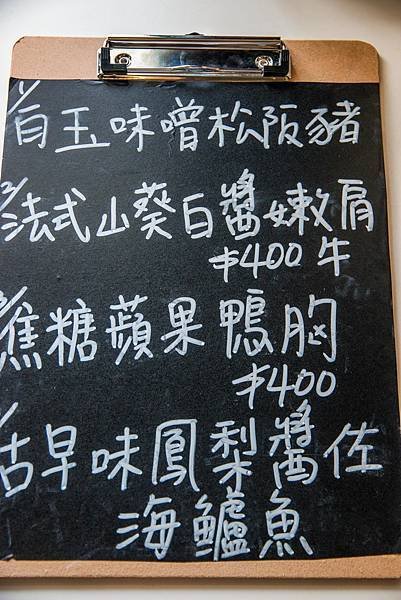 1/ 白玉味噌松阪豬
2/ 法式山葵白醬嫩肩
$400 牛
3/ 焦糖蘋果鴨胸
$400
古早味鳳梨醬佐
海鱸魚